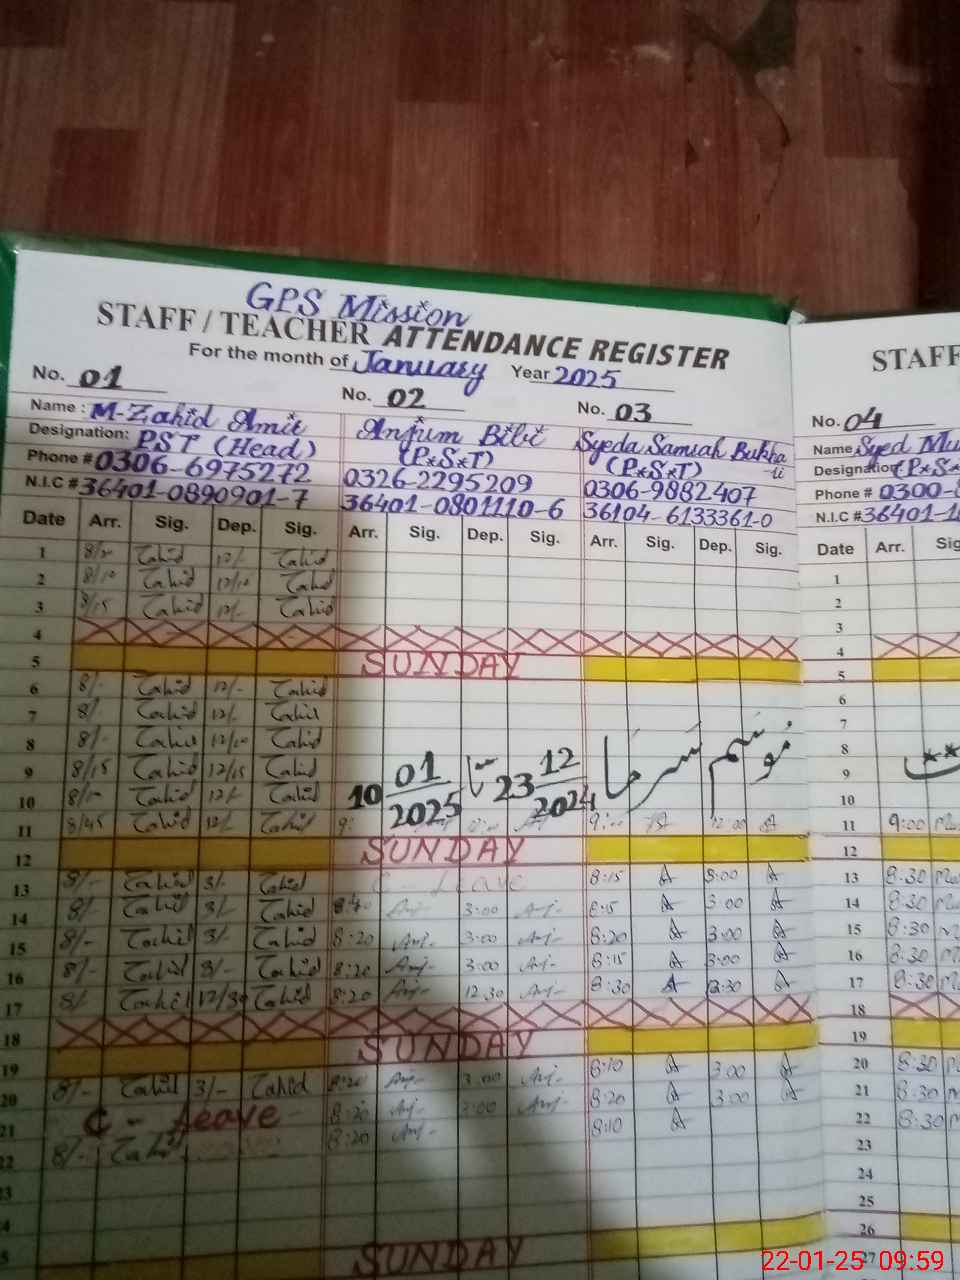 GPS Mission
STAFF / TEACHER ATTENDANCE REGISTER
For the month of January Year 2025
No. 01 No. 02 No. 03
Name : M-Zahid Amit Anjum Bibi Syeda Samiah Bukha
Designation: PST (Head) (P*S*T) (P*S*T)
Phone # 0306-6975272 0326-2295209 0306-9882407
N.I.C # 36401-0890901-7 36401-0801110-6 36104-6133361-0
Date Arr. Sig. Dep. Sig. Arr. Sig. Dep. Sig. Arr. Sig. Dep. Sig.
1 Zahid 12/- Zahid
2 8/10 Zahid 12/10 Zahid
3 8/15 Zahid 12/- Zahid
4
5 SUNDAY
6 8/- Zahid 12/- Zahid
7 8/- Zahid 12/- Zahid
8 8/- Zahid 12/10 Zahid
9 8/15 Zahid 12/15 Zahid
10 Zahid 12/- Zahid
موسم سرما 23 12/2024 تا 10 01/2025
11 8/45 Zahid 12/- Zahid 12:00
12 SUNDAY
13 8/- Zahid 3/- Zahid C - Leave 8:15 A 3:00 A
14 8/- Zahid 3/- Zahid 8:40 Anj- 3:00 Anj- 8:15 A 3:00 A
15 8/- Zahid 3/- Zahid 8:20 Anj- 3:00 Anj- 8:20 A 3:00 A
16 8/- Zahid 3/- Zahid 8:20 Anj- 3:00 Anj- 8:15 A 3:00 A
17 8/- Zahid 12/30 Zahid 8:20 Anj- 12:30 Anj- 8:30 A 12:30 A
18
19 SUNDAY
20 8/- Zahid 3/- Zahid 8:20 Anj- 3:00 Anj- 8:10 A 3:00 A
21 C - Leave 8:20 Anj- 3:00 Anj- 8:20 A 3:00 A
22 8/- Zahid 8:20 Anj- 8:10 A
SUNDAY
STAFF
No. 04
Name Syed Mu
Designation (P*S*
Phone # 0300-
N.I.C # 36401-1
Date Arr. Sig
1
2
3
4
5
6
7
8
9
10
11 9:00
12
13 8:30
14 8:30
15 8:30
16 8:30
17 8:30
18
19
20 8:30
21 8:30
22 8:30
23
24
25
26
27
22-01-25 09:59